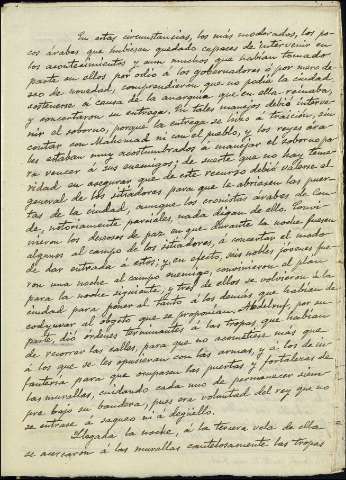 En estas circunstancias, los más moderados, los po-
cos árabes que hubiesen quedado capaces de intervenir en
los acontecimientos y aun muchos que habían tomado
parte en ellos por odio á los gobernadores ó por mero de-
seo de novedad, comprendieron que no podía la ciudad
sostenerse á causa de la anarquía que en ella reinaba,
y concertaron su entrega. En tales manejos debió interve-
nir el soborno, porque la entrega se hizo á traición, sin
contar con Mahomad ni con el pueblo, y los reyes ára-
bes estaban muy acostumbrados á manejar el soborno pa-
ra vencer á sus enemigos; de suerte que no hay teme-
ridad en asegurar que de este recurso debió valerse el
general de los sitiadores para que le abriesen las puer-
tas de la ciudad, aunque los cronistas árabes de Cór-
doba, notoriamente parciales, nada digan de ello. Convi-
nieron los deseosos de paz en que durante la noche fuesen
algunos al campo de los sitiadores, á concertar el modo
de dar entrada á éstos; y, en efecto, seis nobles jóvenes fue-
ron una noche al campo enemigo, convinieron el plan
para la noche siguiente, y tres de ellos se volvieron á la
ciudad para poner al tanto á los demás que habían de
coadyuvar al objeto que se proponían. Abdelruf, por su
parte, dió órdenes terminantes á las tropas, que habían
de recorrer las calles, para que no acometiese más que
á los que se les opusieran con las armas, y á los de in-
fantería para que ocupasen las puertas y fortalezas de
las murallas, cuidando cada uno de permanecer siem-
pre bajo su bandera, pues era voluntad del rey que no
se entrase á saqueo ni á degüello.
Llegada la noche, á la tercera vela de ella
se acercaron á las murallas cautelosamente las tropas